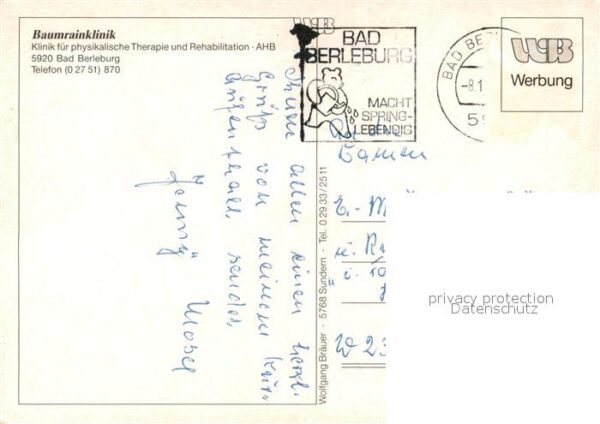 Baumrainklinik
Klinik für physikalische Therapie und Rehabilitation · AHB
5920 Bad Berleburg
Telefon (0 27 51) 870
Ihnen allen einen herzl.
Gruß von meinem Kur-
aufenthalt, sendet
WB
BAD
BERLEBURG
MACHT
SPRING-
LEBENDIG
BAD BER
-8.1
59
WB
Werbung
An die
Damen
E.-M
u.
W 23
Wolfgang Bräuer · 5768 Sundern · Tel. 0 29 33/25 11
privacy protection
Datenschutz